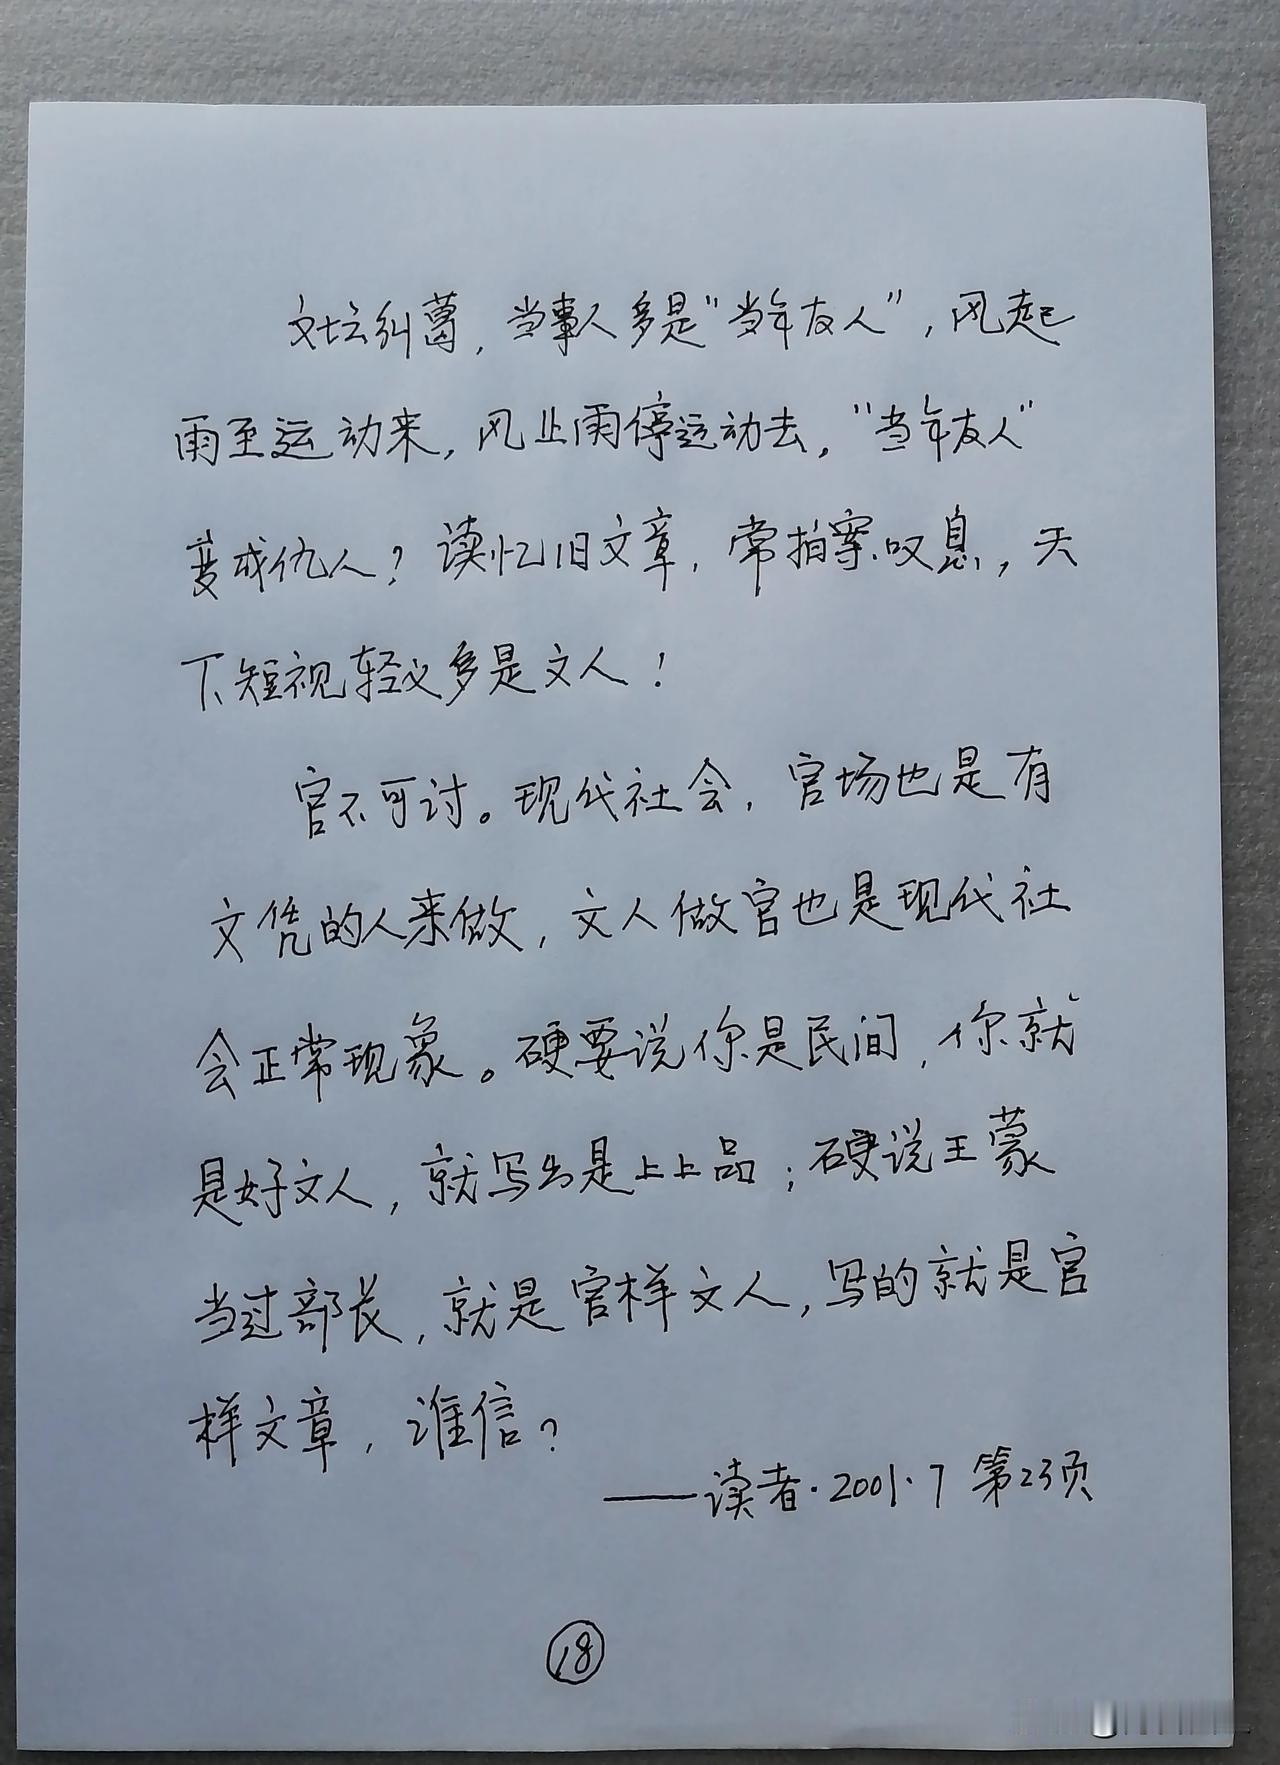 文坛纠葛，当事人多是“当年友人”，风起
雨至运动来，风止雨停运动去，“当年友人”
变成仇人？读忆旧文章，常拍案叹息，天
下短视轻义多是文人！
官不可讨。现代社会，官场也是有
文凭的人来做，文人做官也是现代社
会正常现象。硬要说你是民间，你就
是好文人，就写出是上上品；硬说王蒙
当过部长，就是官样文人，写的就是官
样文章，谁信？
——读者·2001·7 第23页
18